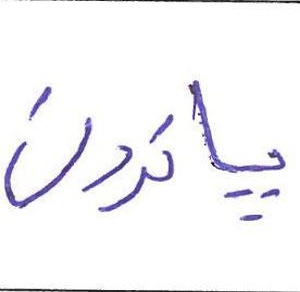 بپا کردن